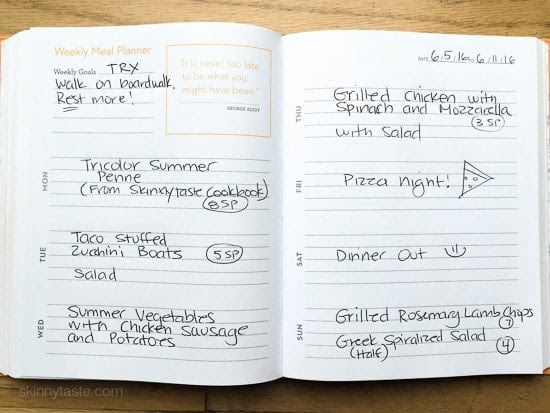 Weekly Meal Planner
Weekly Goals TRX
Walk on boardwalk.
Rest more!
"It is never too late
to be what you
might have been."
GEORGE ELIOT
MON
Tricolor Summer
Penne
(From Skinnytaste Cookbook)
8 SP
TUE
Taco Stuffed
Zucchini Boats 5 SP
Salad
WED
Summer Vegetables
with Chicken Sausage
and Potatoes
skinnytaste.com
DATE 6/5/16 TO 6/11/16
THU
Grilled Chicken with
Spinach and Mozzarella
3 SP
with Salad
FRI
Pizza night!
SAT
Dinner Out
SUN
Grilled Rosemary Lamb Chops
7
Greek Spiralized Salad
(Half) 4